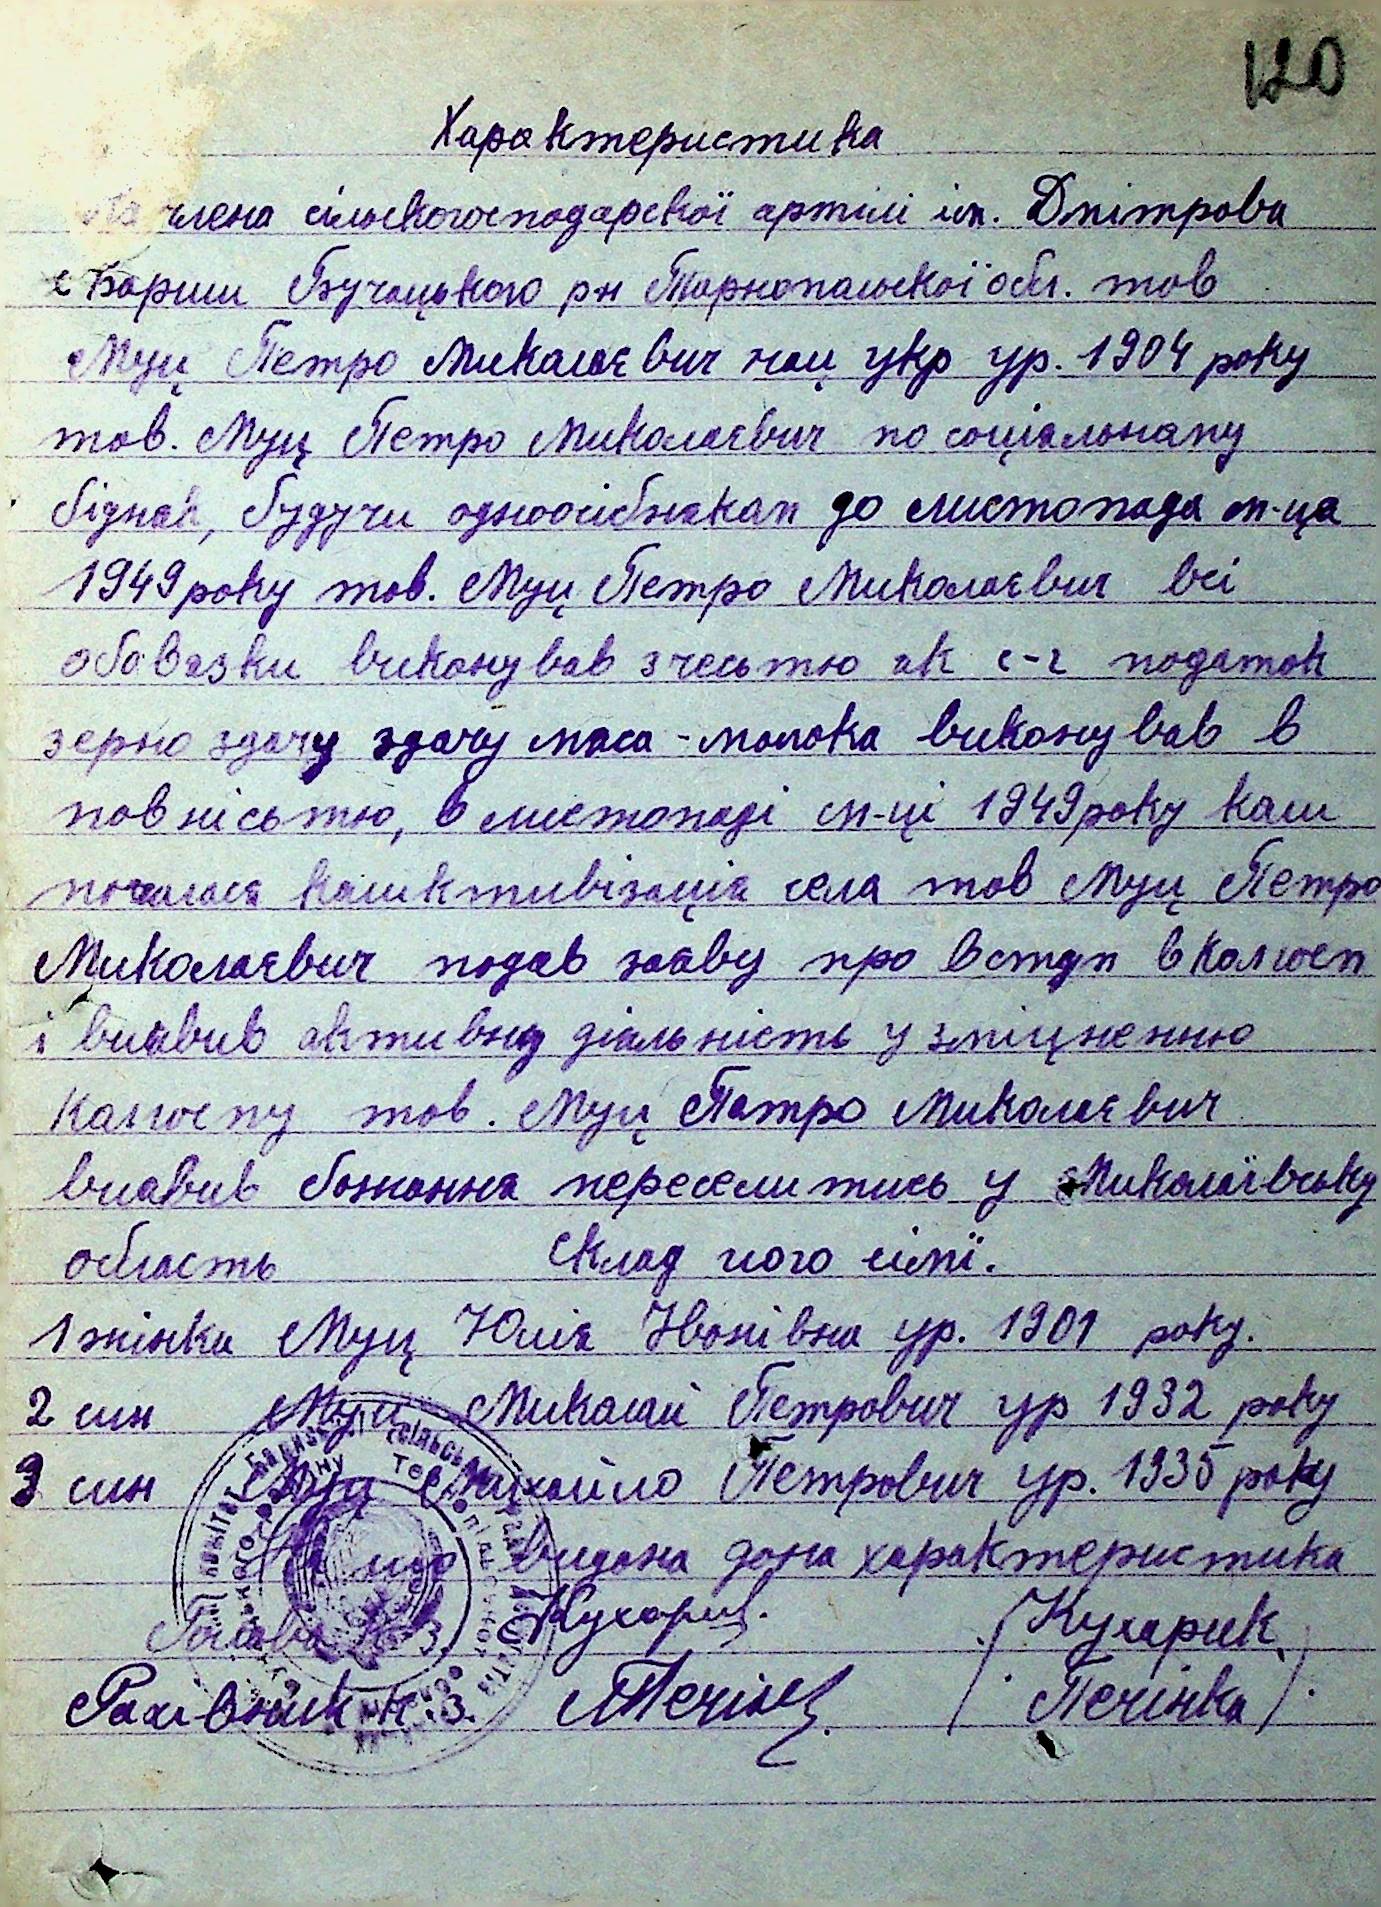 120
Характеристика
На члена сільскогосподарскої артілі ім. Дмітрова
с Бариш Бучацького р-н Тарнопольскої обл. тов
Муц Петро Миколаєвич нац укр ур. 1904 року
тов. Муц Петро Миколаєвич по соціальнаму
бідняк, будучи одноосібнакам до листопада м-ца
1949 року тов. Муц Петро Миколаєвич всі
обовазки виконував з чесьтю ак с-г податок
зерно здачу здачу мяса-молока виконував в
повнісьтю, в листопаді м-ці 1949 року коли
почалася коликтивізація села тов Муц Петро
Миколаєвич подав заяву про вступ в колгосп
і виявив активну діяльність у зміцненню
колгоспу тов. Муц Петро Миколаєвич
виявив бажання переселитись у Миколаївську
область Склад його сімї.
1 жінка Муц Юлія Іванівна ур. 1901 року.
2 син Муц Миколай Петрович ур 1932 року
3 син Муц Михайло Петрович ур. 1935 року
На що видана дана характеристика
Голава к-з. Кухарик (Кухарик)
Рахівник к.з. (Печінка)